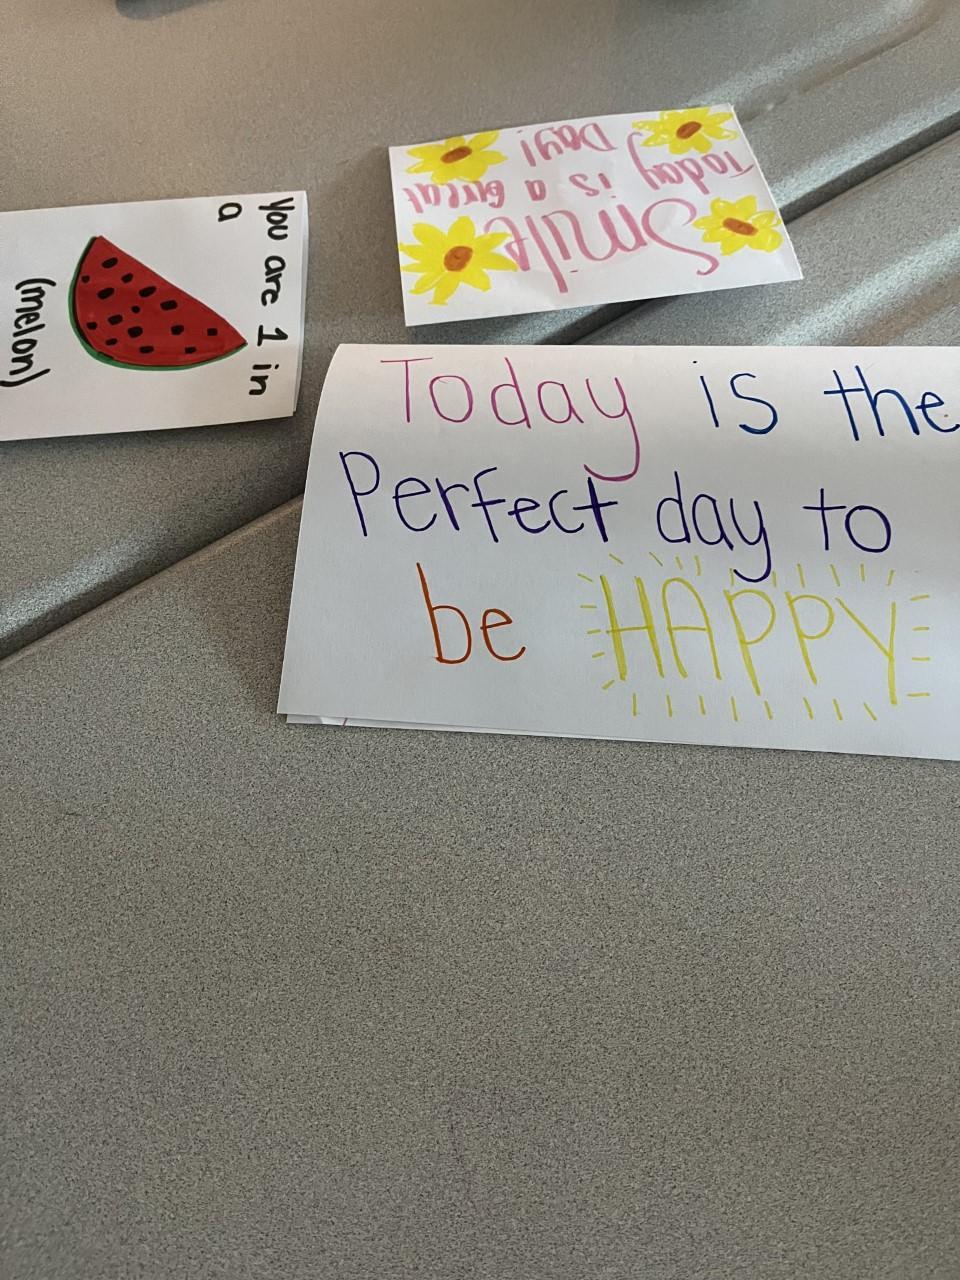 Smile
Today is a Great
Day!
you are 1 in
a
(melon)
Today is the
Perfect day to
be HAPPY